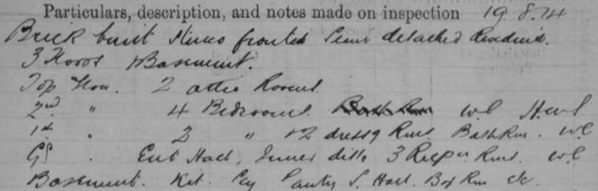 Particulars, description, and notes made on inspection 19.8.14
Brick built Stucco fronted Semi detached Residence.
3 floors Basement.
Top floor. 2 attic Rooms
2nd " 4 Bedrooms. Bath Rm W.C
1st " 2 " & 2 dressg Rms. Bath Rm. W.C
Gd . Ent Hall, Inner ditto 3 Recpn Rms. W.C
Basement. Kit. Pantry S. Hall. Box Rm &c.